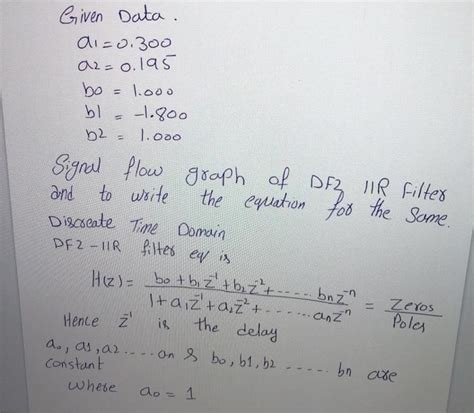 Given Data.
a1 = 0.300
a2 = 0.195
b0 = 1.000
b1 = -1.800
b2 = 1.000
Signal flow graph of DF2 IIR Filter
and to write the equation for the Same.
Discreate Time Domain
DF2-IIR filter eq is
H(z) = b0 + b1 z^-1 + b2 z^-2 + ...... bn z^-n / 1 + a1 z^-1 + a2 z^-2 + ...... an z^-n = Zeros / Poles
Hence z^-1 is the delay
a0, a1, a2 ..... an & b0, b1, b2 ...... bn are
constant
where a0 = 1